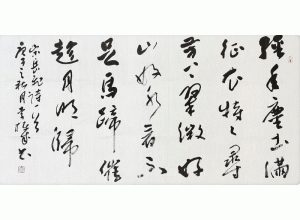 經年塵土滿
征衣特々尋
芳上翠微好
山好水看不
足馬蹄催
趁月明歸
宋岳飛詩一首